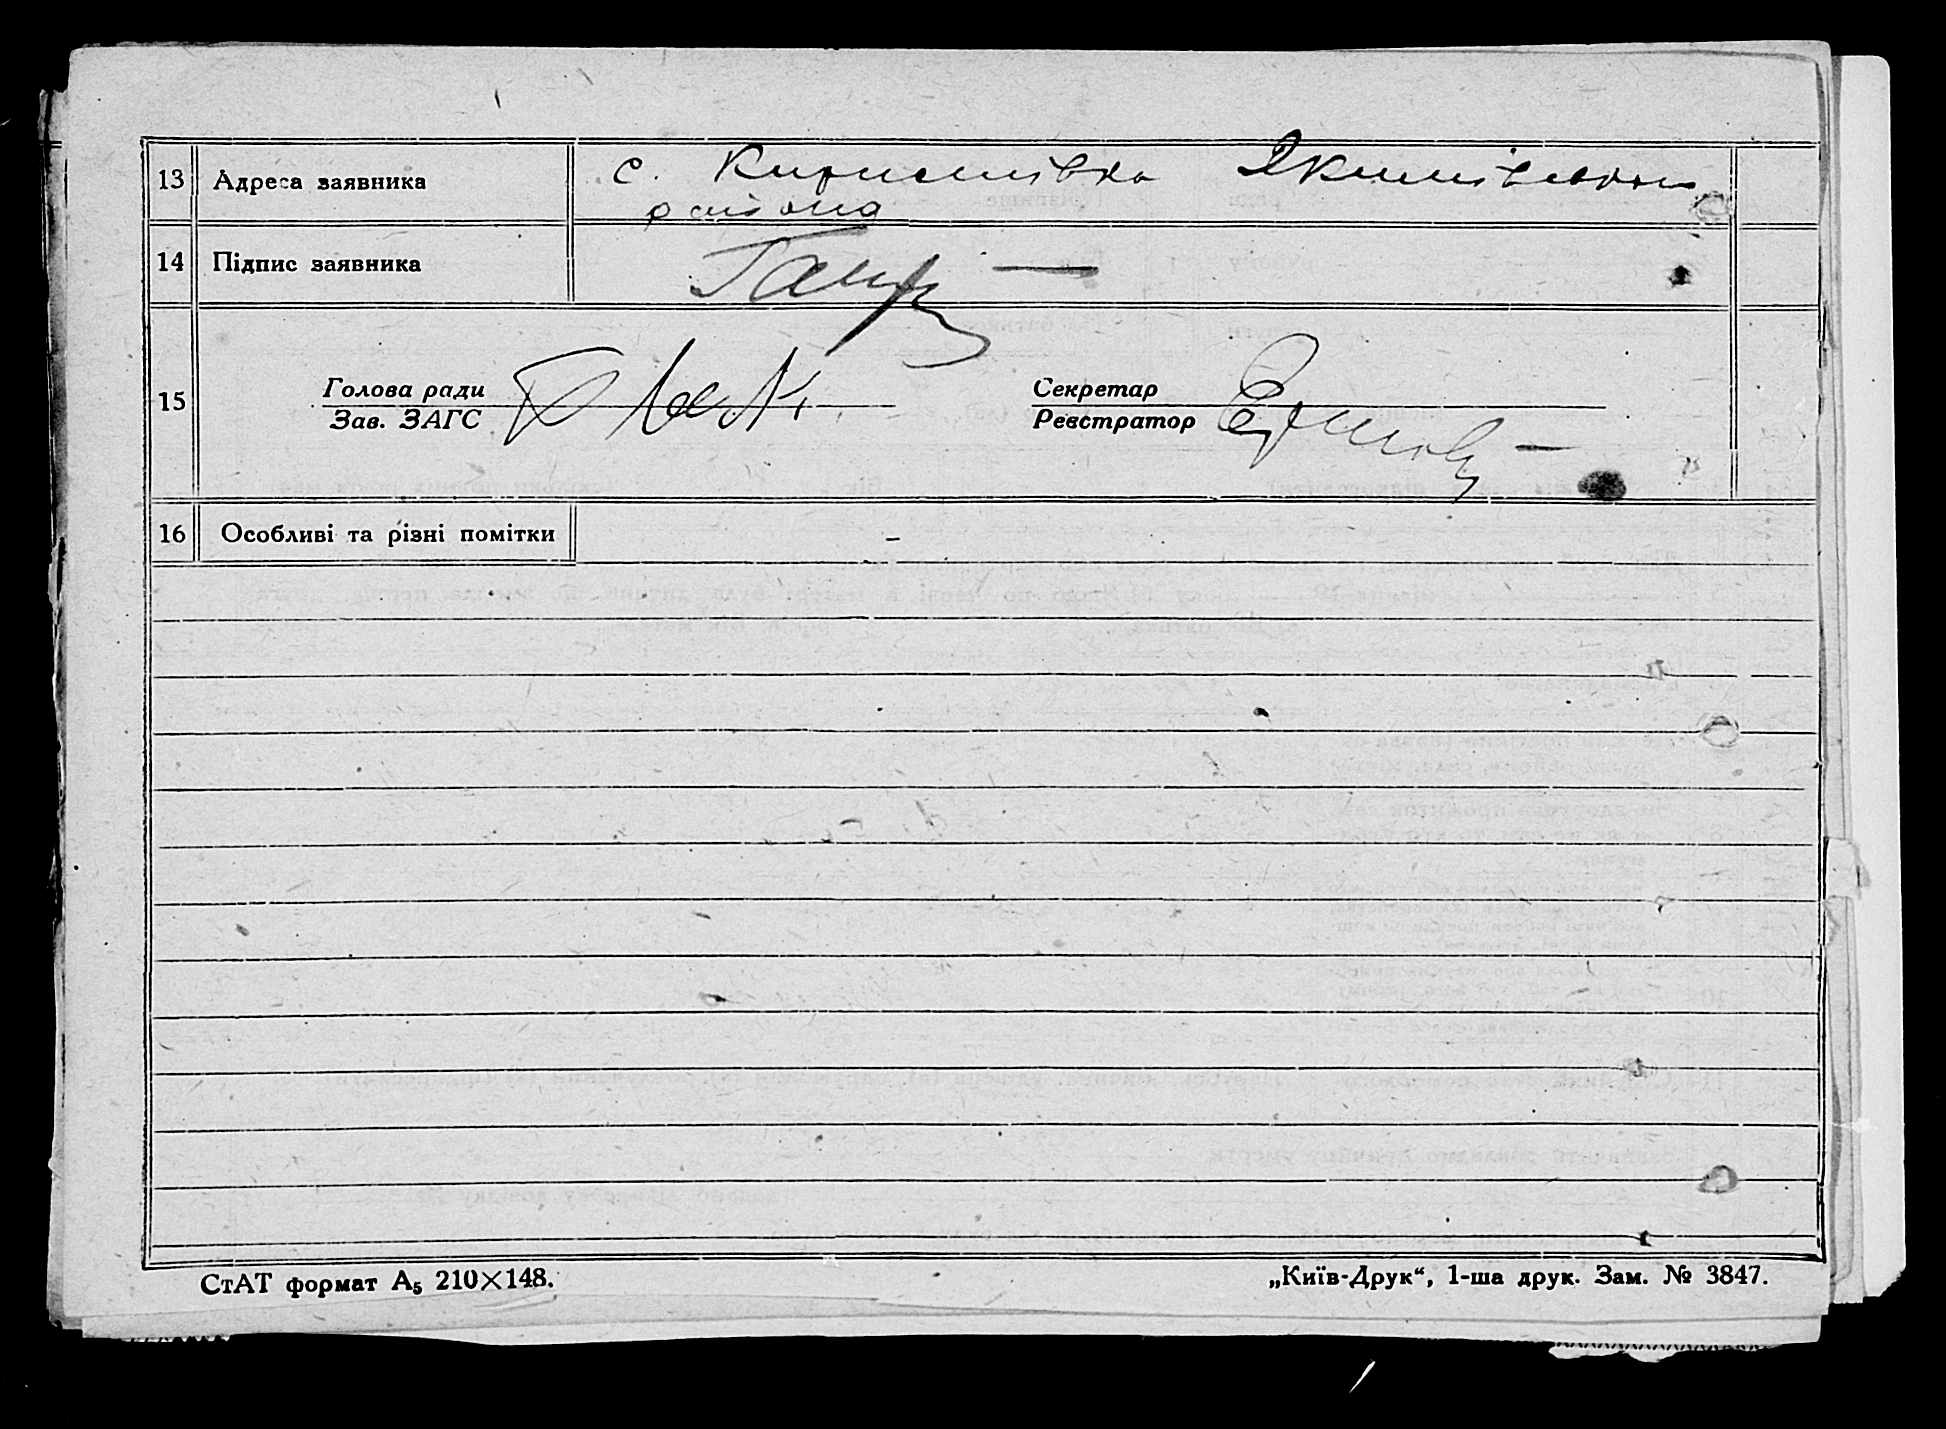 13 Адреса заявника с. Кирилівка Якимівського
района
14 Підпис заявника
15 Голова ради Секретар
Зав. ЗАГС Реєстратор
16 Особливі та різні помітки -
СтАТ формат А₅ 210×148. „Київ-Друк“, 1-ша друк. Зам. № 3847.